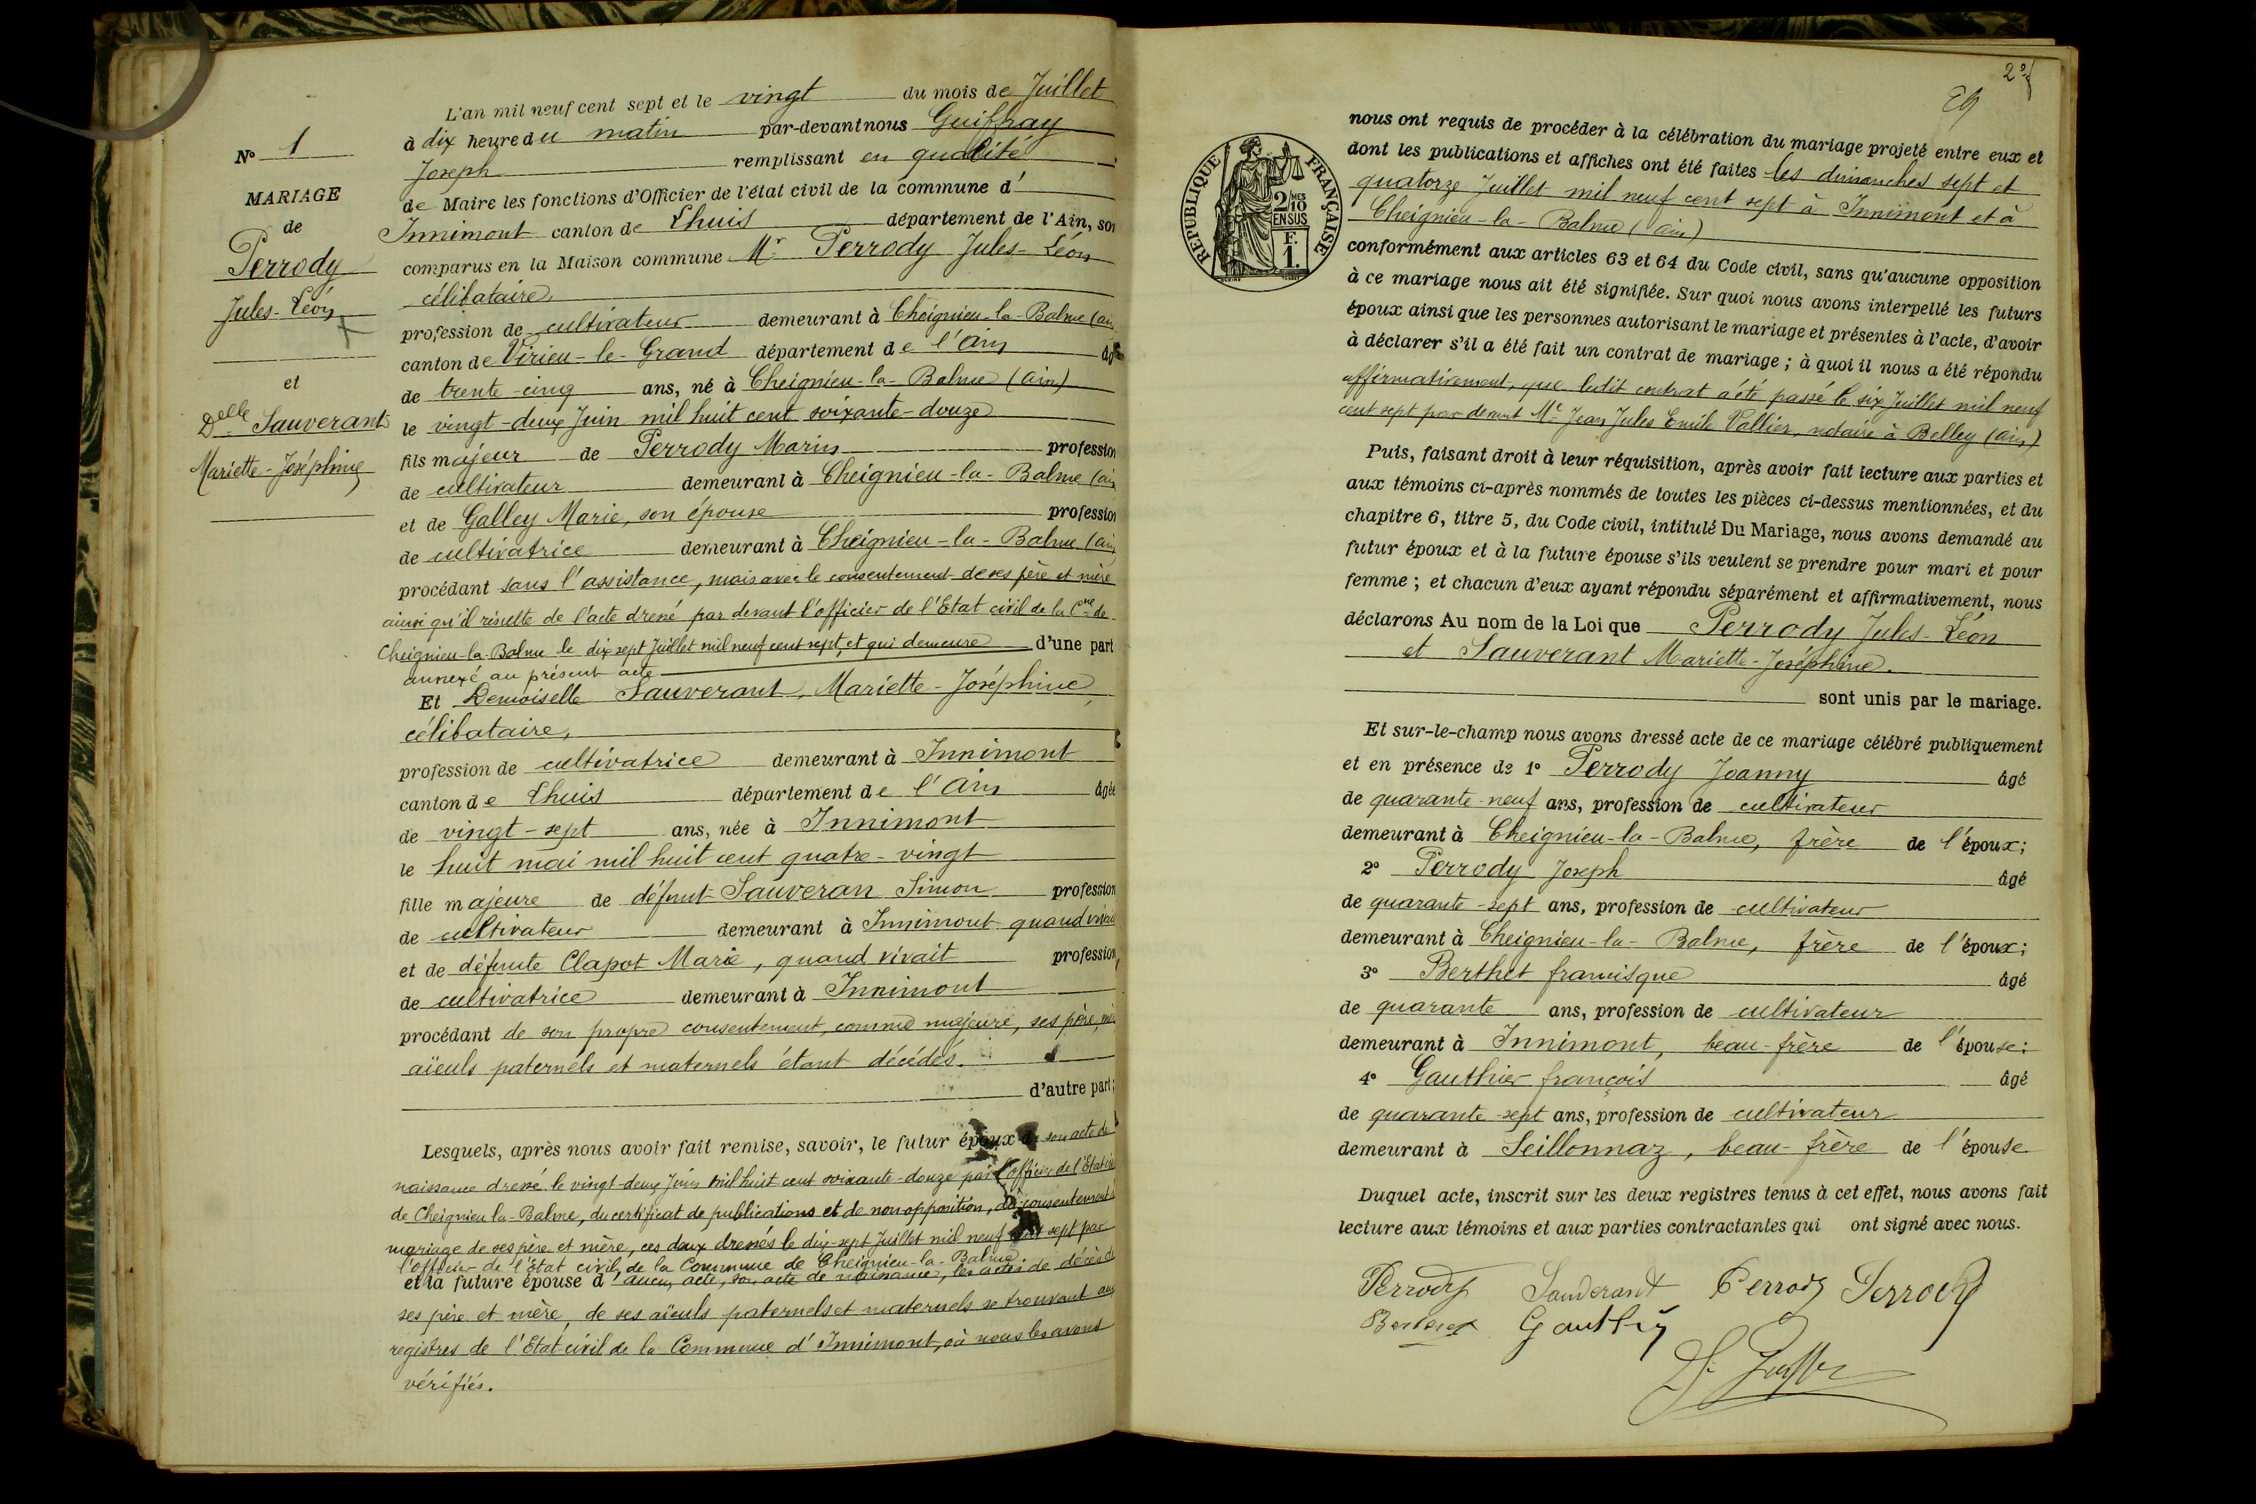 N° 1
MARIAGE
de
Perrody
Jules-Léon
et
Delle Sauverant
Mariette-Joséphine
L'an mil neuf cent sept et le vingt du mois de Juillet
à dix heure du matin par-devant nous Guiffray
Joseph remplissant en qualité
de Maire les fonctions d'Officier de l'état civil de la commune d'
Innimont canton de Lhuis département de l'Ain, son
comparus en la Maison commune Mr Perrody Jules-Léon
célibataire
profession de cultivateur demeurant à Cheignieu-la-Balme (ain
canton de Virieu-le-Grand département de l'ain âgé
de trente-cinq ans, né à Cheignieu-la-Balme (ain)
le vingt-deux Juin mil huit cent soixante-douze
fils majeur de Perrody Marin profession
de cultivateur demeurant à Cheignieu-la-Balme (ain
et de Galley Marie, son épouse profession
de cultivatrice demeurant à Cheignieu-la-Balme (ain
procédant sans l'assistance, mais avec le consentement de ses père et mère
ainsi qu'il résulte de l'acte dressé par devant l'officier de l'Etat civil de la Cne de
Cheignieu-la-Balme le dix sept Juillet mil neuf cent sept, et qui demeure d'une part
annexé au présent acte
Et Demoiselle Sauverant, Mariette-Joséphine,
célibataire,
profession de cultivatrice demeurant à Innimont
canton de Lhuis département de l'ain âgée
de vingt-sept ans, née à Innimont
le huit mai mil huit cent quatre-vingt
fille majeure de défunt Sauveran Simon profession
de cultivateur demeurant à Innimont quand vivait
et de défunte Clapot Marie, quand vivait profession
de cultivatrice demeurant à Innimont
procédant de son propre consentement, comme majeure, ses père, mère
aïeuls paternels et maternels étant décédés.
d'autre part;
Lesquels, après nous avoir fait remise, savoir, le futur époux de son acte de
naissance dressé le vingt-deux Juin mil huit cent soixante-douze par l'officier de l'Etat civil
de Cheignieu la-Balme, du certificat de publications et de non opposition, du consentement
mariage de ses père et mère, ces deux dressés le dix-sept Juillet mil neuf cent sept par
l'officier de l'Etat civil, de la Commune de Cheignieu-la-Balme.
et la future épouse d'aucun acte, son acte de naissance, les actes de décès de
ses père et mère, de ses aïeuls paternels et maternels se trouvant aux
registres de l'Etat-civil de la Commune d'Innimont, où nous les avons
vérifiés.
29
REPUBLIQUE FRANÇAISE
2/10 MES
EN SUS
F.
1.
nous ont requis de procéder à la célébration du mariage projeté entre eux et
dont les publications et affiches ont été faites les dimanches sept et
quatorze Juillet mil neuf cent sept à Innimont et à
Cheignieu-la-Balme (ain)
conformément aux articles 63 et 64 du Code civil, sans qu'aucune opposition
à ce mariage nous ait été signifiée. Sur quoi nous avons interpellé les futurs
époux ainsi que les personnes autorisant le mariage et présentes à l'acte, d'avoir
à déclarer s'il a été fait un contrat de mariage ; à quoi il nous a été répondu
affirmativement, que ledit contrat a été passé le six Juillet mil neuf
cent sept par devant Me Jean Jules Emile Vallier, notaire à Belley (ain)
Puis, faisant droit à leur réquisition, après avoir fait lecture aux parties et
aux témoins ci-après nommés de toutes les pièces ci-dessus mentionnées, et du
chapitre 6, titre 5, du Code civil, intitulé Du Mariage, nous avons demandé au
futur époux et à la future épouse s'ils veulent se prendre pour mari et pour
femme ; et chacun d'eux ayant répondu séparément et affirmativement, nous
déclarons Au nom de la Loi que Perrody Jules-Léon
et Sauverant Mariette-Joséphine.
sont unis par le mariage.
Et sur-le-champ nous avons dressé acte de ce mariage célébré publiquement
et en présence de 1° Perrody Joanny âgé
de quarante-neuf ans, profession de cultivateur
demeurant à Cheignieu-la-Balme, frère de l'époux;
2° Perrody Joseph âgé
de quarante-sept ans, profession de cultivateur
demeurant à Cheignieu-la-Balme, frère de l'époux;
3° Berthet francisque âgé
de quarante ans, profession de cultivateur
demeurant à Innimont, beau-frère de l'épouse;
4° Gauthier françois âgé
de quarante-sept ans, profession de cultivateur
demeurant à Seillonnaz, beau-frère de l'épouse
Duquel acte, inscrit sur les deux registres tenus à cet effet, nous avons fait
lecture aux témoins et aux parties contractantes qui ont signé avec nous.
Perrody Sauverant Perrody Perrody
Berthet Gauthier